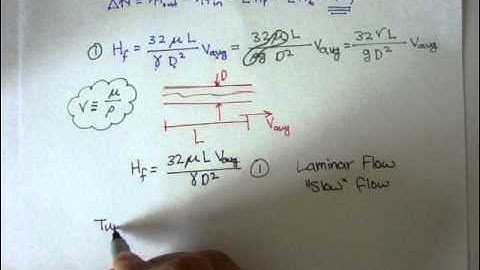 ① H_f = 32 μ L / γ D² V_avg = 32 μ L / ρg D² V_avg = 32 ν L / g D² V_avg
ν ≡ μ / ρ
D
V_avg
L
H_f = 32 μ L V_avg / γ D² ① Laminar Flow
"Slow" flow
Tu